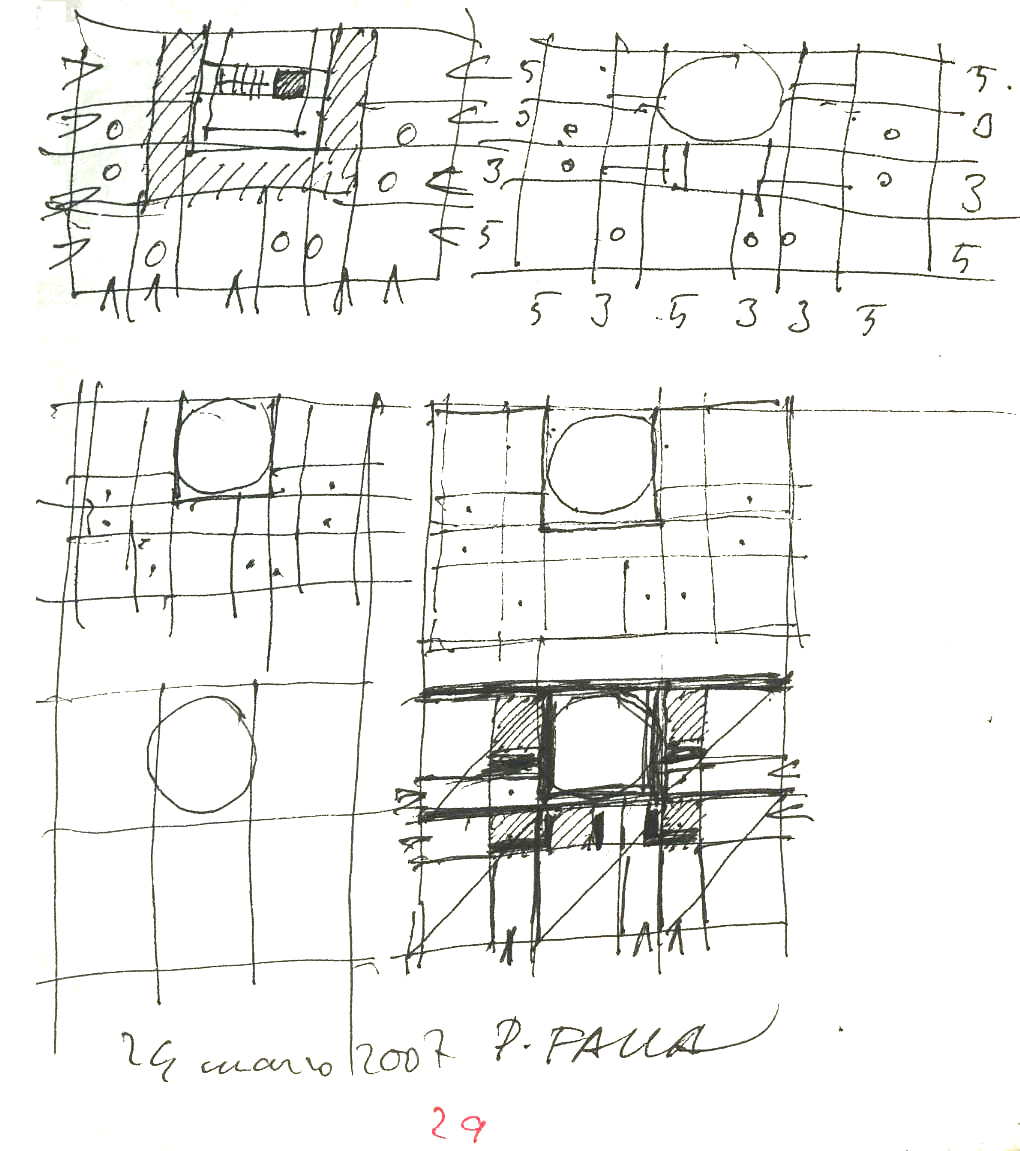 5 5
3 3
3 3
5 5
5 3 5 3 3 5
24 marzo 2007 P. FALLA
29